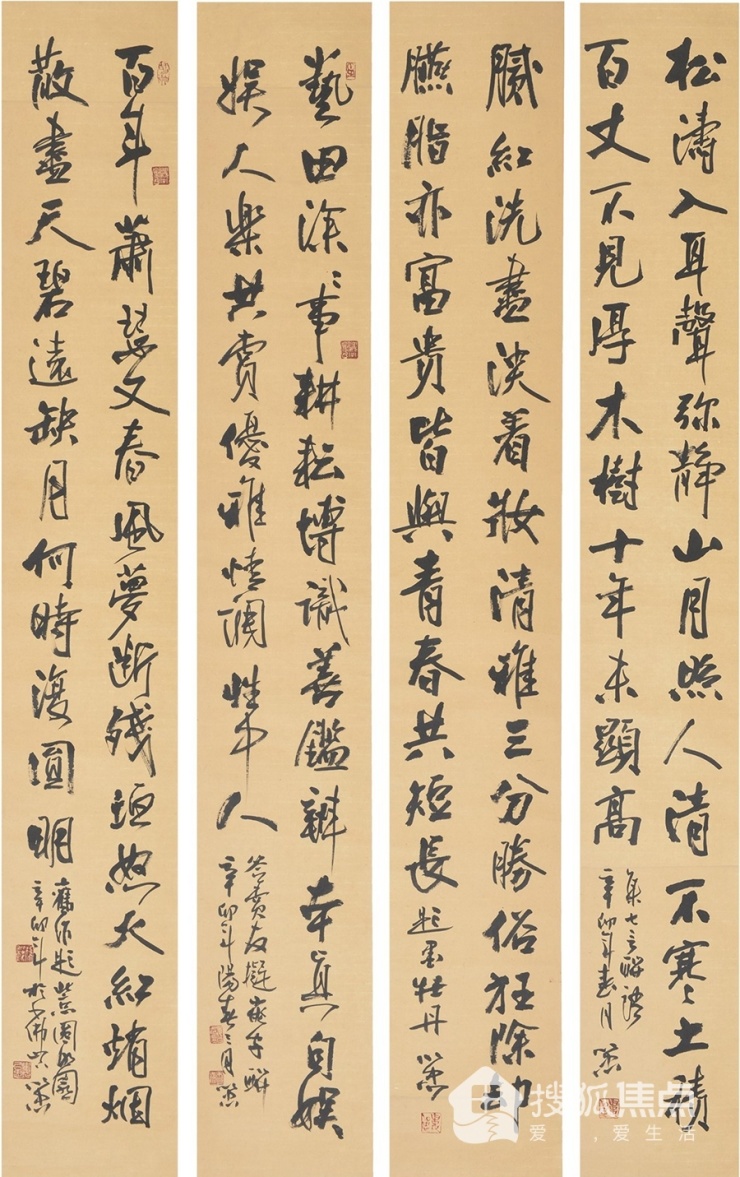 松濤入耳聲弥静山月照人清不寒土積
百丈不見厚木樹十年未顯高
集七言聯語
辛卯年春月
膩紅洗盡淡着妝清雅三分勝俗狂除却
臙脂亦富貴皆與青春共短長
題墨牡丹
藝田深〻事耕耘博識善鑑辨本真自娱
娱人樂共賞優雅情調性中人
嵌字聯
辛卯年陽春三月
百年蕭瑟又春風夢斷殘垣怒火紅焇烟
散盡天碧遠缺月何時復圓明
舊作題
辛卯年於
搜狐焦点
爱,爱生活